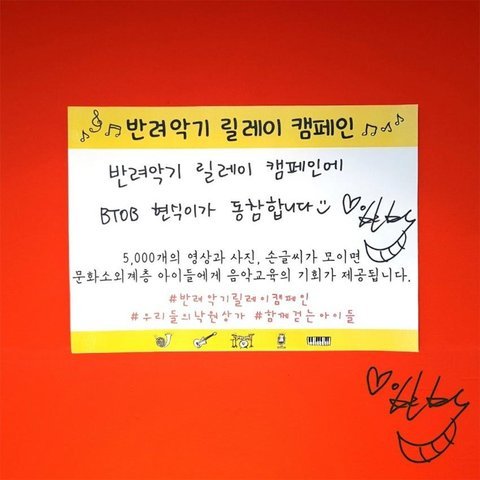 반려악기 릴레이 캠페인
반려악기 릴레이 캠페인에
BTOB 현식이가 동참합니다
5,000개의 영상과 사진, 손글씨가 모이면
문화소외계층 아이들에게 음악교육의 기회가 제공됩니다.
#반려악기릴레이캠페인
#우리들의낙원상가 #함께걷는아이들